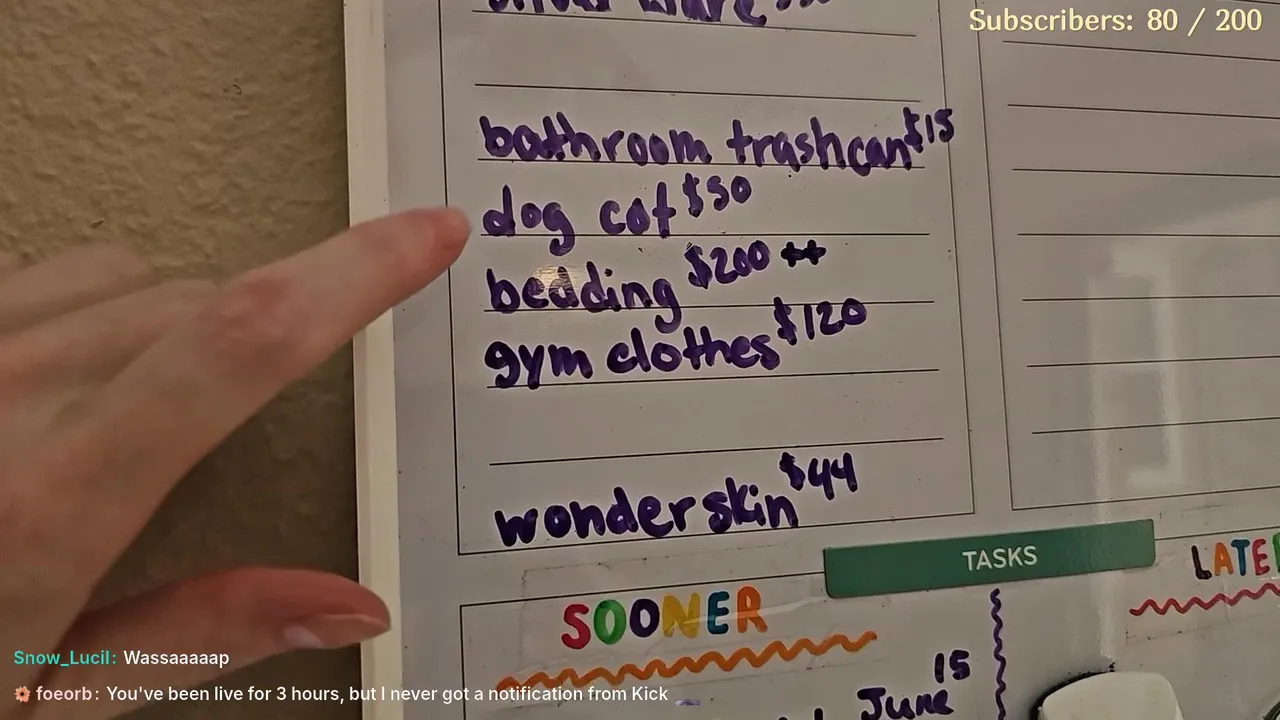 Subscribers: 80 / 200
bathroom trashcan $15
dog cot $50
bedding $200 ++
gym clothes $120
wonderskin $44
TASKS
SOONER
15
June
Snow_Lucil: Wassaaaaap
foeorb: You've been live for 3 hours, but I never got a notification from Kick